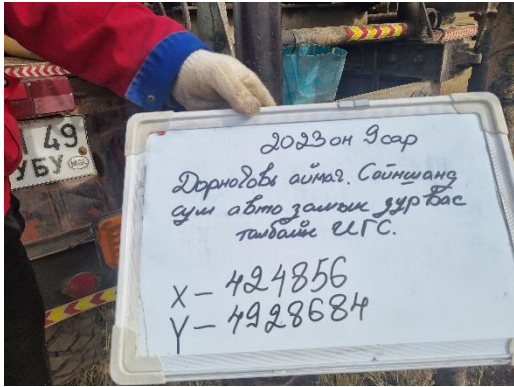 2023 он 9 сар
Дорноговь аймаг. Сайншанд
сум авто замын зурвас
талбайн ИГС.
X – 424856
Y – 4928684
49
УБУ